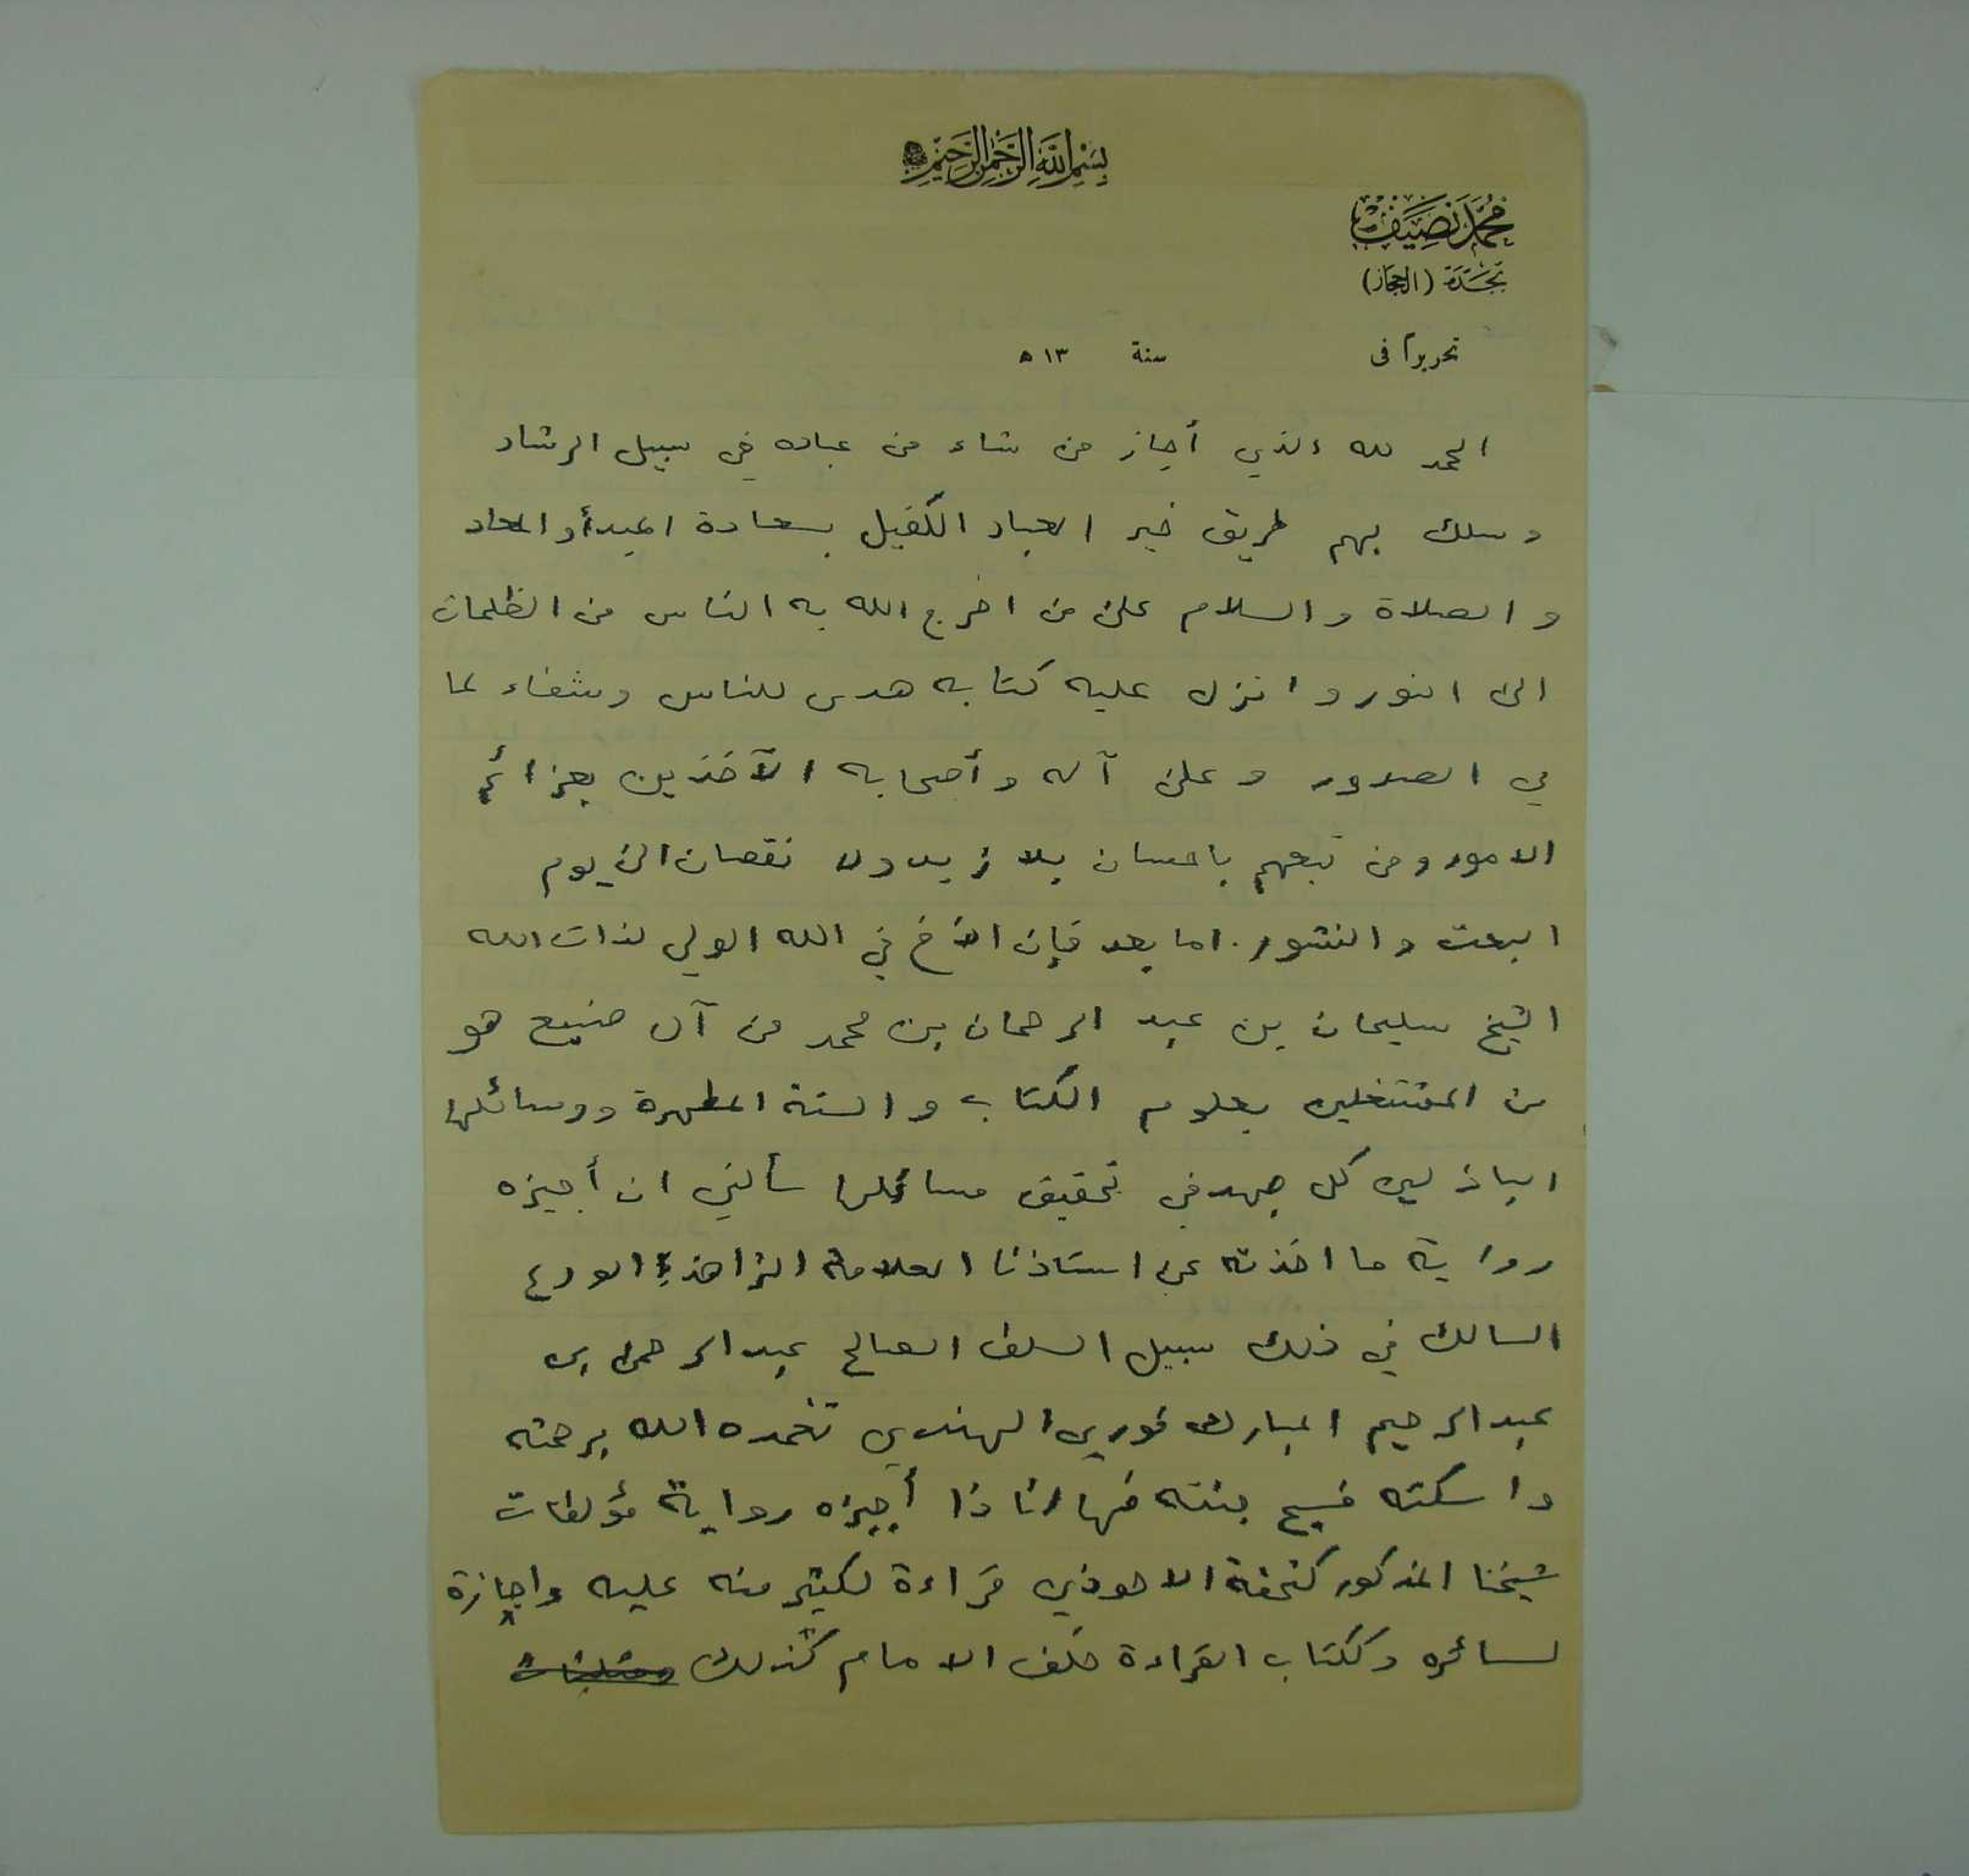 بسم الله الرحمن الرحيم
محمد نصيف
بجدة (الحجاز)
تحريراً فى سنة ١٣ ه
الحمد لله الذي أجاز من شاء من عباده في سبيل الرشاد
وسلك بهم طريق خير العباد الكفيل بسعادة المبدأ والمعاد
والصلاة والسلام على من اخرج الله به الناس من الظلمات
الى النور وانزل عليه كتابه هدى للناس وشفاء لما
في الصدور وعلى آله وأصحابه الآخذين بعزائم
الامور ومن تبعهم باحسان بلا زيد ولا نقصان الى يوم
البعث والنشور. اما بعد فإن الأخ في الله الولي لذات الله
الشيخ سليمان بن عبد الرحمان بن محمد من آل صنيع هو
من المشتغلين بعلوم الكتاب والسنة المطهرة ووسائلها
الباذلين كل جهد في تحقيق مسائلها سألني ان أجيزه
رواية ما اخذته عن استاذنا العلامة الزاهد الورع
السالك في ذلك سبيل السلف الصالح عبد الرحمن بن
عبد الرحيم المبارك فوري الهندي تغمده الله برحمته
واسكنه فسيح جنته فها انا ذا أجيزه رواية مؤلفات
شيخنا المذكور كتحفة الاحوذي قراءة لكثير منه عليه واجازة
لسائره وككتاب القراءة خلف الامام كذلك